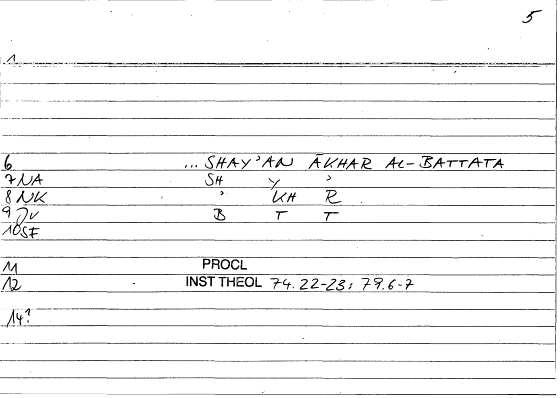 5
1
6 ... SHAY'AN ĀKHAR AL-BATTATA
7 NA SH Y '
8 NK ' KH R
9 JV B T T
10 SF
11 PROCL
12 INST THEOL 74.22-23; 79.6-7
14?